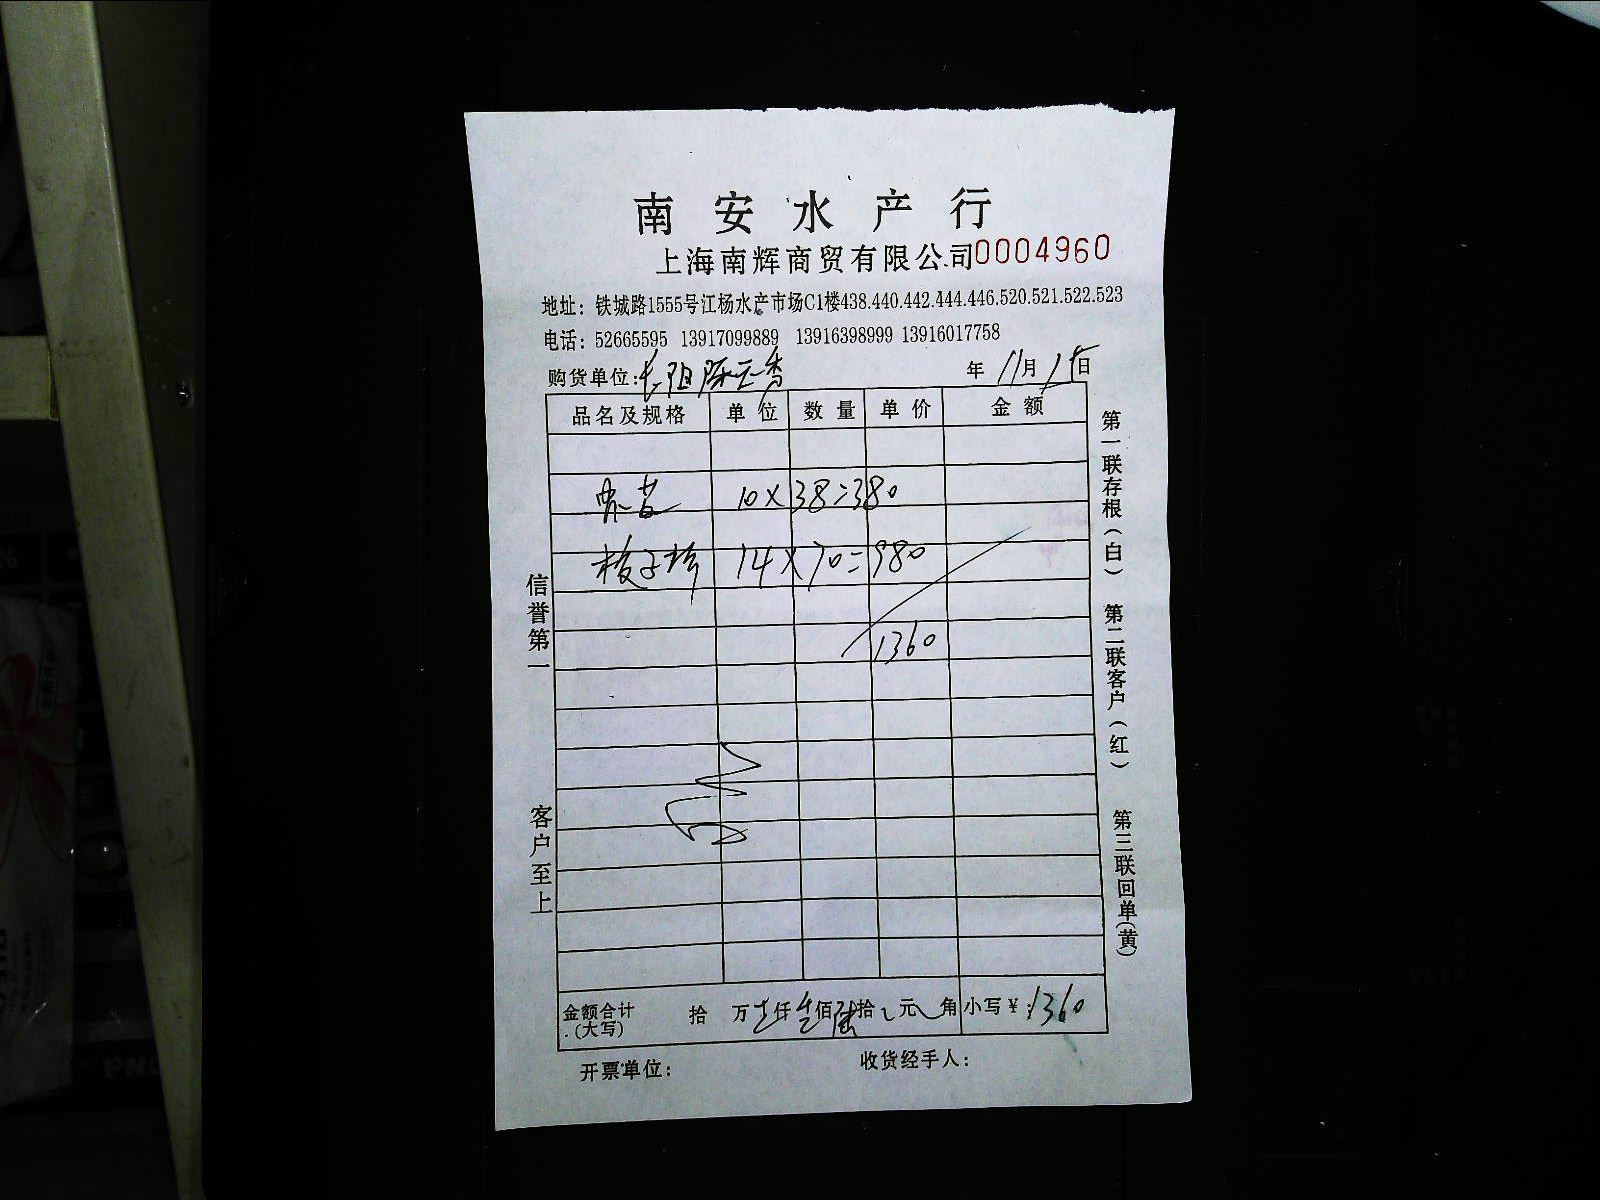 南安水产行
上海南辉商贸有限公司0004960
地址：铁城路1555号江杨水产市场C1楼438.440.442.444.446.520.521.522.523
电话：52665595 13917099889 13916398999 13916017758
购货单位: 陈云香 年 11月15日
品名及规格 单位 数量 单价 金额
10×38=380
梭子 14×70=980
1360
金额合计(大写) 拾 万 仟 佰陆拾 元 角 小写￥:1360
开票单位： 收货经手人：
信誉第一 客户至上
第一联存根（白） 第二联客户（红） 第三联回单(黄)